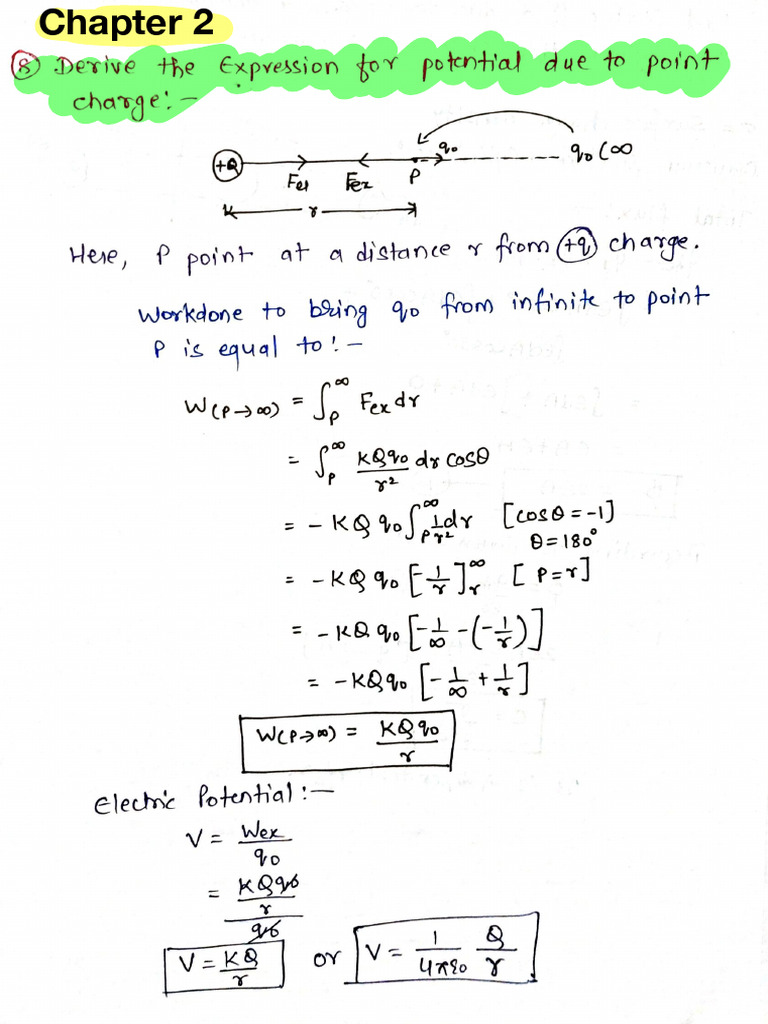 Chapter 2
⑧ Derive the Expression for potential due to point
charge:-
+Q Fe1 Fex P q₀ q₀ (∞
r
Here, P point at a distance r from (+q) charge.
Workdone to bring q₀ from infinite to point
P is equal to:-
W(P→∞) = ∫_P^∞ Fex dr
= ∫_P^∞ KQq₀/r² dr cosθ
= - KQ q₀ ∫_P^∞ 1/r² dr [cosθ = -1]
θ = 180°
= - KQ q₀ [-1/r]_r^∞ [P = r]
= - KQ q₀ [-1/∞ - (-1/r)]
= - KQq₀ [-1/∞ + 1/r]
W(P→∞) = KQq₀/r
Electric Potential:-
V = Wex/q₀
= KQq₀/r/q₀
V = KQ/r or V = 1/4πε₀ Q/r